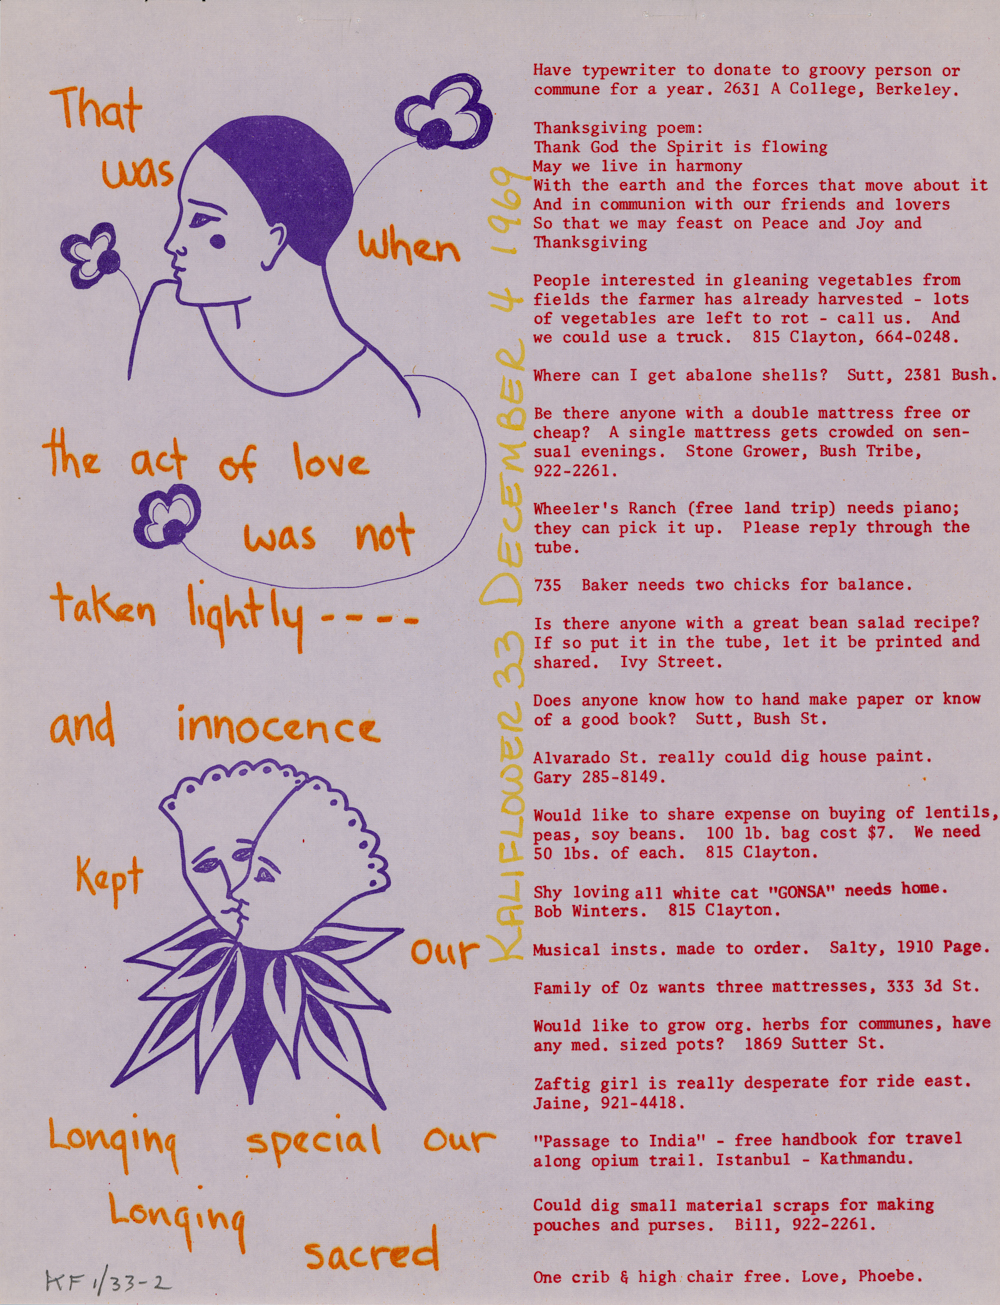 That
was
when
the act of love
was not
taken lightly----
and innocence
Kept
our
Longing special our
Longing
sacred
KF 1/33-2
KALIFLOWER 33 DECEMBER 4 1969
Have typewriter to donate to groovy person or
commune for a year. 2631 A College, Berkeley.
Thanksgiving poem:
Thank God the Spirit is flowing
May we live in harmony
With the earth and the forces that move about it
And in communion with our friends and lovers
So that we may feast on Peace and Joy and
Thanksgiving
People interested in gleaning vegetables from
fields the farmer has already harvested - lots
of vegetables are left to rot - call us. And
we could use a truck. 815 Clayton, 664-0248.
Where can I get abalone shells? Sutt, 2381 Bush.
Be there anyone with a double mattress free or
cheap? A single mattress gets crowded on sen-
sual evenings. Stone Grower, Bush Tribe,
922-2261.
Wheeler's Ranch (free land trip) needs piano;
they can pick it up. Please reply through the
tube.
735 Baker needs two chicks for balance.
Is there anyone with a great bean salad recipe?
If so put it in the tube, let it be printed and
shared. Ivy Street.
Does anyone know how to hand make paper or know
of a good book? Sutt, Bush St.
Alvarado St. really could dig house paint.
Gary 285-8149.
Would like to share expense on buying of lentils,
peas, soy beans. 100 lb. bag cost $7. We need
50 lbs. of each. 815 Clayton.
Shy loving all white cat "GONSA" needs home.
Bob Winters. 815 Clayton.
Musical insts. made to order. Salty, 1910 Page.
Family of Oz wants three mattresses, 333 3d St.
Would like to grow org. herbs for communes, have
any med. sized pots? 1869 Sutter St.
Zaftig girl is really desperate for ride east.
Jaine, 921-4418.
"Passage to India" - free handbook for travel
along opium trail. Istanbul - Kathmandu.
Could dig small material scraps for making
pouches and purses. Bill, 922-2261.
One crib & high chair free. Love, Phoebe.